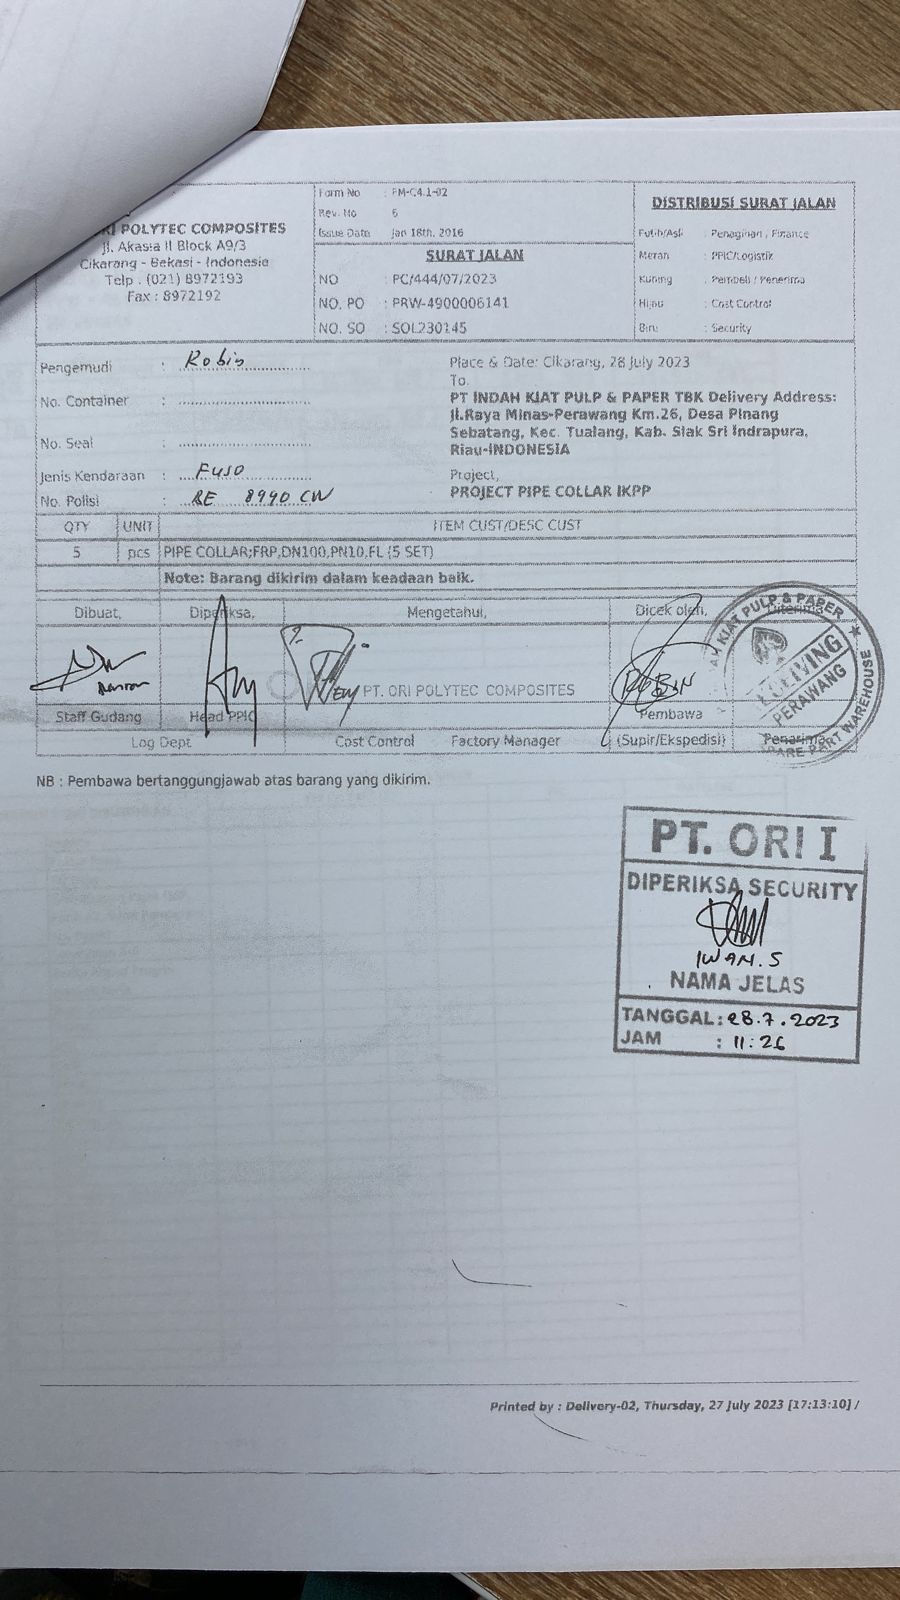 POLYTEC COMPOSITES
Jl. Akasia II Block A9/3
Cikarang - Bekasi - Indonesia
Telp . (021) 8972193
Fax : 8972192
Form No : FM-C4.1-02
Rev. No 6
Issue Date Jan 18th, 2016
SURAT JALAN
NO : PC/444/07/2023
NO. PO : PRW-4900006141
NO. SO : SOL230145
DISTRIBUSI SURAT JALAN
Putih/Asli : Penagihan , Finance
Merah : PPIC/Logistik
Kuning : Pembeli / Penerima
Hijau : Cost Control
Biru : Security
Pengemudi : Robin
No. Container :
No. Seal :
Jenis Kendaraan : Fuso
No. Polisi : BE 8990 CW
Place & Date: Cikarang, 28 July 2023
To.
PT INDAH KIAT PULP & PAPER TBK Delivery Address:
Jl.Raya Minas-Perawang Km.26, Desa Pinang
Sebatang, Kec. Tualang, Kab. Siak Sri Indrapura,
Riau-INDONESIA
Project,
PROJECT PIPE COLLAR IKPP
QTY UNIT ITEM CUST/DESC CUST
5 pcs PIPE COLLAR;FRP,DN100,PN10,FL (5 SET)
Note: Barang dikirim dalam keadaan baik.
Dibuat, Diperiksa, Mengetahui, Dicek oleh, Diterima,
PT. ORI POLYTEC COMPOSITES
ROBIN
Staff Gudang Head PPIC Pembawa
Log Dept Cost Control Factory Manager (Supir/Ekspedisi) Penerima
KIAT PULP & PAPER
PERAWANG
PART WAREHOUSE
NB : Pembawa bertanggungjawab atas barang yang dikirim.
PT. ORI I
DIPERIKSA SECURITY
IWAN.S
NAMA JELAS
TANGGAL: 28.7.2023
JAM : 11:26
Printed by : Delivery-02, Thursday, 27 July 2023 [17:13:10] /